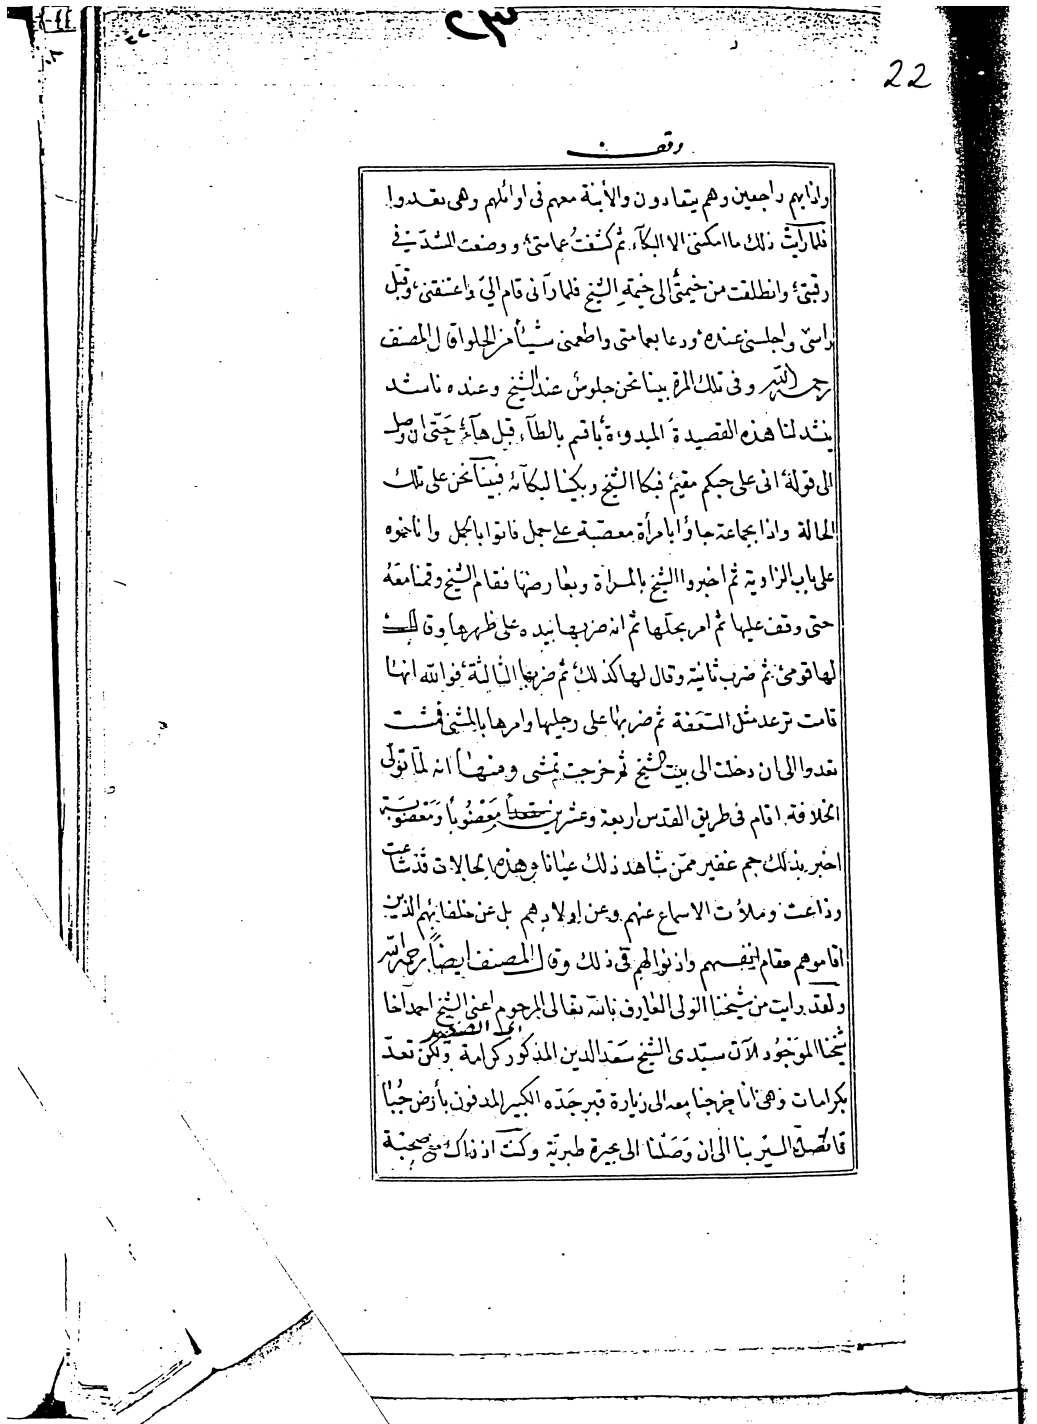 ٢٣
22
وقف
واذا بهم راجعين وهم يتعادون والأبنة معهم فى اوائلهم وهى تعدوا
فلما رايت ذلك ما امكننى الا البكآء ثم كشفت عمامتى ووضعت الشدّ فى
رقبتى وانطلقت من خيمتى الى خيمة الشيخ فلما رآنى قام الىّ واعتنقنى وقبّل
راسى واجلسنى عنده ودعا بعمامتى واطعمنى شيئا من الحلوا قال المصنف
رحمه الله وفى تلك المرة بينا نحن جلوس عند الشيخ وعنده ناشد
ينشد لنا هذه القصيدة المبدوءة بأقسم بالطآء قبل هآء حتى ان وصل
الى قوله انى على حبكم مقيم فبكا الشيخ وبكينا لبكآئه فبينا نحن على تلك
الحالة واذا بجماعة جاؤا بامرأة معصّبة على جمل فاتوا بالجمل واناخوه
على باب الزاوية ثم اخبروا الشيخ بالمراة وبعارضها فقام الشيخ وقمنا معه
حتى وقف عليها ثم امر بحلّها ثم انه ضربها بيده على ظهرها وقال
لها قومى ثم ضرب ثانية وقال لها كذلك ثم ضربها الثالثة فوالله انها
قامت ترعد مثل السعفة ثم ضربها على رجليها وامرها بالمشى فمشت
تعدوا الى ان دخلت الى بيت الشيخ ثم خرجت تمشى ومنها انه لما تولّى
الخلافة اقام فى طريق القدس اربعة وعشرين مقعدا معضوبا ومعضوبة
اخبر بذلك جم غفير ممّن شاهد ذلك عيانا وهذه الحالات قد شاعت
وذاعت وملأت الاسماع عنهم وعن اولادهم بل عن خلفايهم الذين
اقاموهم مقام انفسهم واذنوا لهم فى ذلك وقال المصنف ايضًا رحمه الله
ولقد رايت من شيخنا الولى العارف بالله تعالى المرحوم اعنى الشيخ احمد اخا
شيخنا الموجود الآن سيّدى الشيخ سعد الدين المذكور كرامة ولكن تعدّ
بكرامات وهى انا خرجنا معه الى زيارة قبر جدّه الكبير المدفون بأرض جُبّا
فاتصل السير بنا الى ان وصلنا الى بحيرة طبرية وكنت اذ ذاك فى صحبة